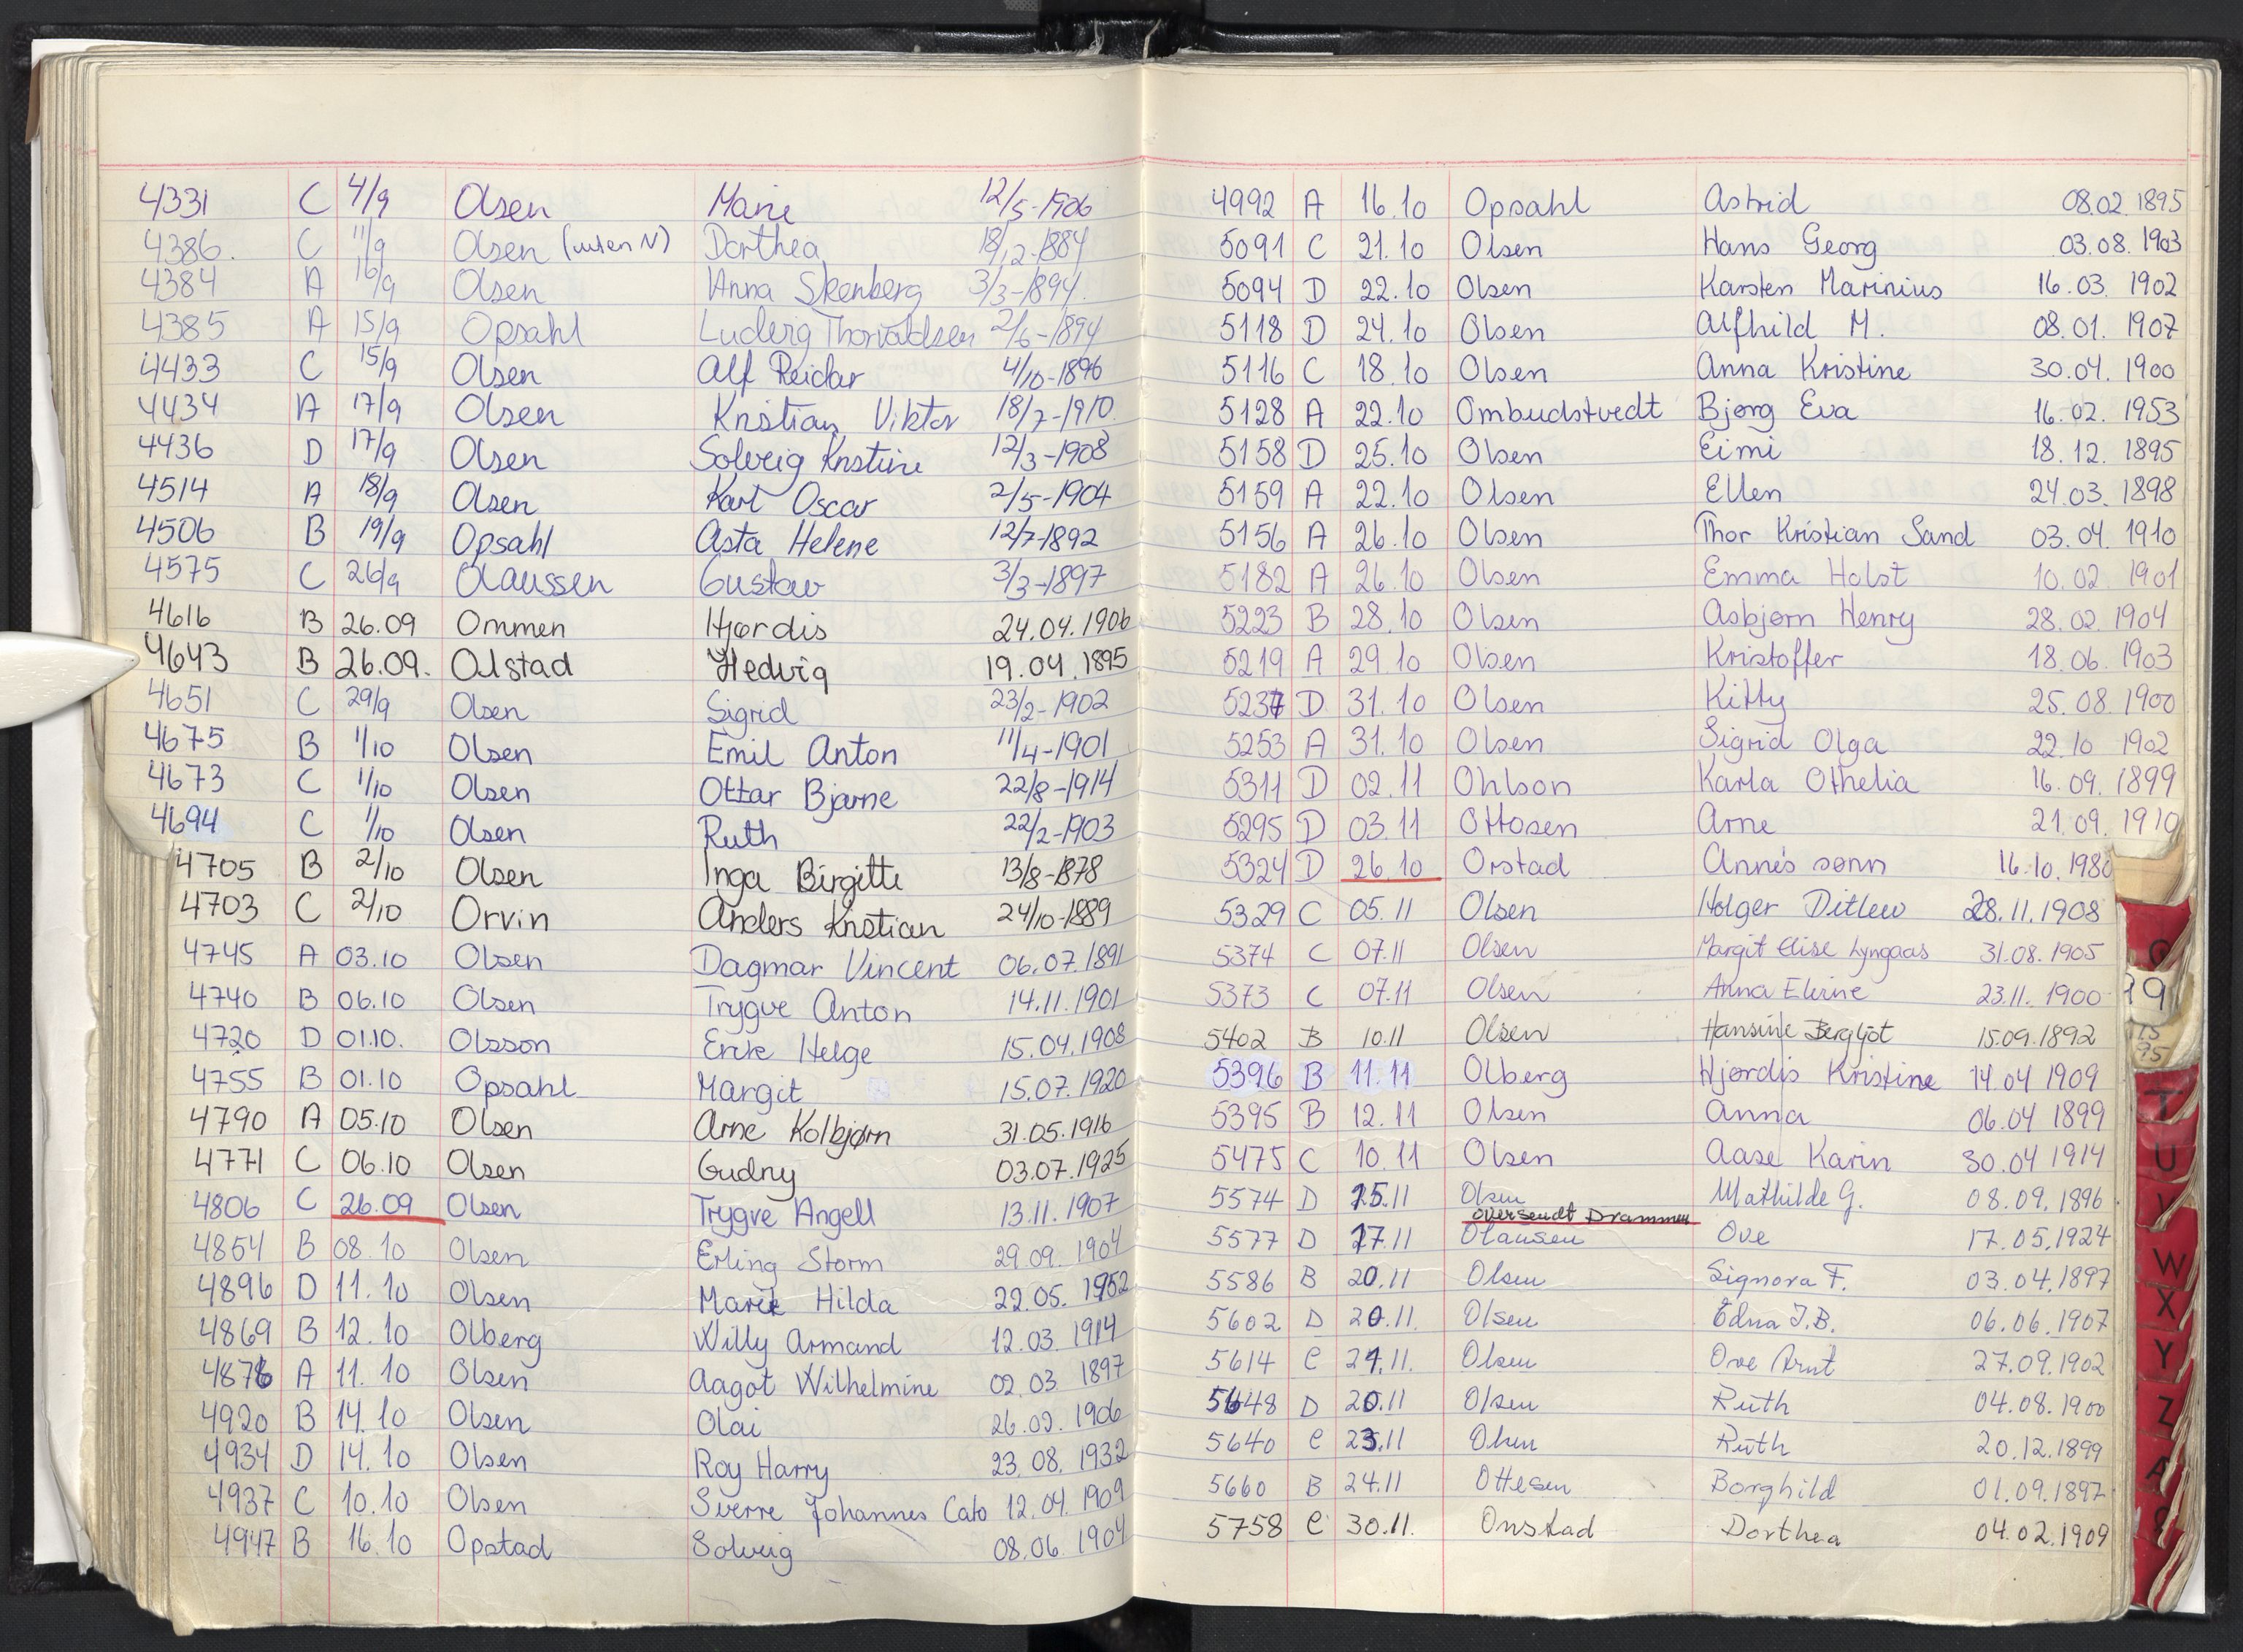 4331 C 4/9 Olsen Marie 12/5-1906
4386. C 11/9 Olsen (uten N) Dorthea 18/12-1884
4384 A 16/9 Olsen Anna Stenberg 3/3-1894.
4385 A 15/9 Opsahl Ludvig Thorvaldsen 2/6-1894
4433 C 15/9 Olsen Alf Reidar 4/10-1896
4434 A 17/9 Olsen Kristian Viktor 18/7-1910.
4436 D 17/9 Olsen Solveig Kristine 12/3-1908
4514 A 18/9 Olsen Karl Oscar 2/5-1904
4506 B 19/9 Opsahl Asta Helene 12/7-1892
4575 C 26/9 Olaussen Gustav 3/3-1897
4616 B 26.09 Ommen Hjørdis 24.04.1906
4643 B 26.09. Olstad Hedvig 19.04.1895
4651 C 29/9 Olsen Sigrid 23/2-1902
4675 B 1/10 Olsen Emil Anton 11/4-1901
4673 C 1/10 Olsen Ottar Bjarne 22/8-1914
4694 C 1/10 Olsen Ruth 22/2-1903
4705 B 2/10 Olsen Inga Birgitte 13/8-1878
4703 C 2/10 Orvin Anders Kristian 24/10-1889
4745 A 03.10 Olsen Dagmar Vincent 06.07.1891
4740 B 06.10 Olsen Trygve Anton 14.11.1901
4720 D 01.10. Olsson Erik Helge 15.04.1908
4755 B 01.10 Opsahl Margit 15.07.1920
4790 A 05.10 Olsen Arne Kolbjørn 31.05.1916
4771 C 06.10 Olsen Gudny 03.07.1925
4806 C 26.09 Olsen Trygve Angell 13.11.1907
4854 B 08.10 Olsen Erling Storm 29.09.1904
4896 D 11.10 Olsen Marie Hilda 22.05.1952
4869 B 12.10 Olberg Willy Armand 12.03.1914
4876 A 11.10 Olsen Aagot Wilhelmine 02.03 1897
4920 B 14.10 Olsen Olai 26.02.1906
4934 D 14.10 Olsen Roy Harry 23.08.1932
4937 C 10.10 Olsen Sverre Johannes Cato 12.04.1909
4947 B 16.10 Opstad Solveig 08.06.1904
4992 A 16.10 Opsahl Astrid 08.02.1895
5091 C 21.10 Olsen Hans Georg 03.08.1903
5094 D 22.10 Olsen Karsten Marinius 16.03.1902
5118 D 24.10 Olsen Alfhild M. 08.01.1907
5116 C 18.10 Olsen Anna Kristine 30.04.1900
5128 A 22.10 Ombudstvedt Bjørg Eva 16.02.1953
5158 D 25.10 Olsen Eimi 18.12.1895
5159 A 22.10 Olsen Ellen 24.03.1898
5156 A 26.10 Olsen Thor Kristian Sand 03.04.1910
5182 A 26.10 Olsen Emma Holst 10.02 1901
5223 B 28.10 Olsen Asbjørn Henry 28.02.1904
5219 A 29.10 Olsen Kristoffer 18.06.1903
5237 D 31.10 Olsen Kitty 25.08.1900
5253 A 31.10 Olsen Sigrid Olga 22.10 1902
5311 D 02.11 Ohlson Karla Othelia 16.09.1899
5295 D 03.11 Ottosen Arne 21.09.1910
5324 D 26.10 Orstad Anne's sønn 16.10.1980
5329 C 05.11 Olsen Holger Ditlew 28.11.1908
5374 C 07.11 Olsen Margit Elise Lyngaas 31.08.1905
5373 C 07.11 Olsen Anna Elvine 23.11.1900
5402 B 10.11 Olsen Hansine Bergljot 15.09.1892
5396 B 11.11 Olberg Hjørdis Kristine 14.04 1909
5395 B 12.11 Olsen Anna 06.04 1899
5475 C 10.11 Olsen Aase Karin 30.04 1914
5574 D 15.11 Olsen Mathilde G. 08.09.1896
oversendt Drammen
5577 D 17.11 Olausen Ove 17.05.1924
5586 B 20.11 Olsen Signora F. 03.04.1897
5602 D 20.11. Olsen Edna J.B. 06.06.1907
5614 C 21.11. Olsen Ove Arnt 27.09.1902
5648 D 20.11 Olsen Ruth 04.08.1900
5640 C 23.11 Olsen Ruth 20.12.1899
5660 B 24.11 Ottesen Borghild 01.09.1897
5758 C 30.11. Onstad Dorthea 04.02.1909
T
U
V
W
X
Y
Z